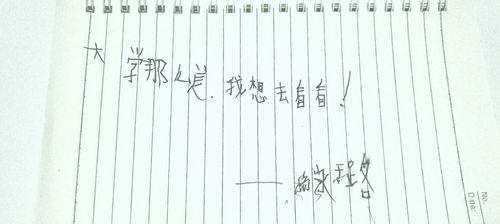 大学那么美.我想去看看!
No.
Date: